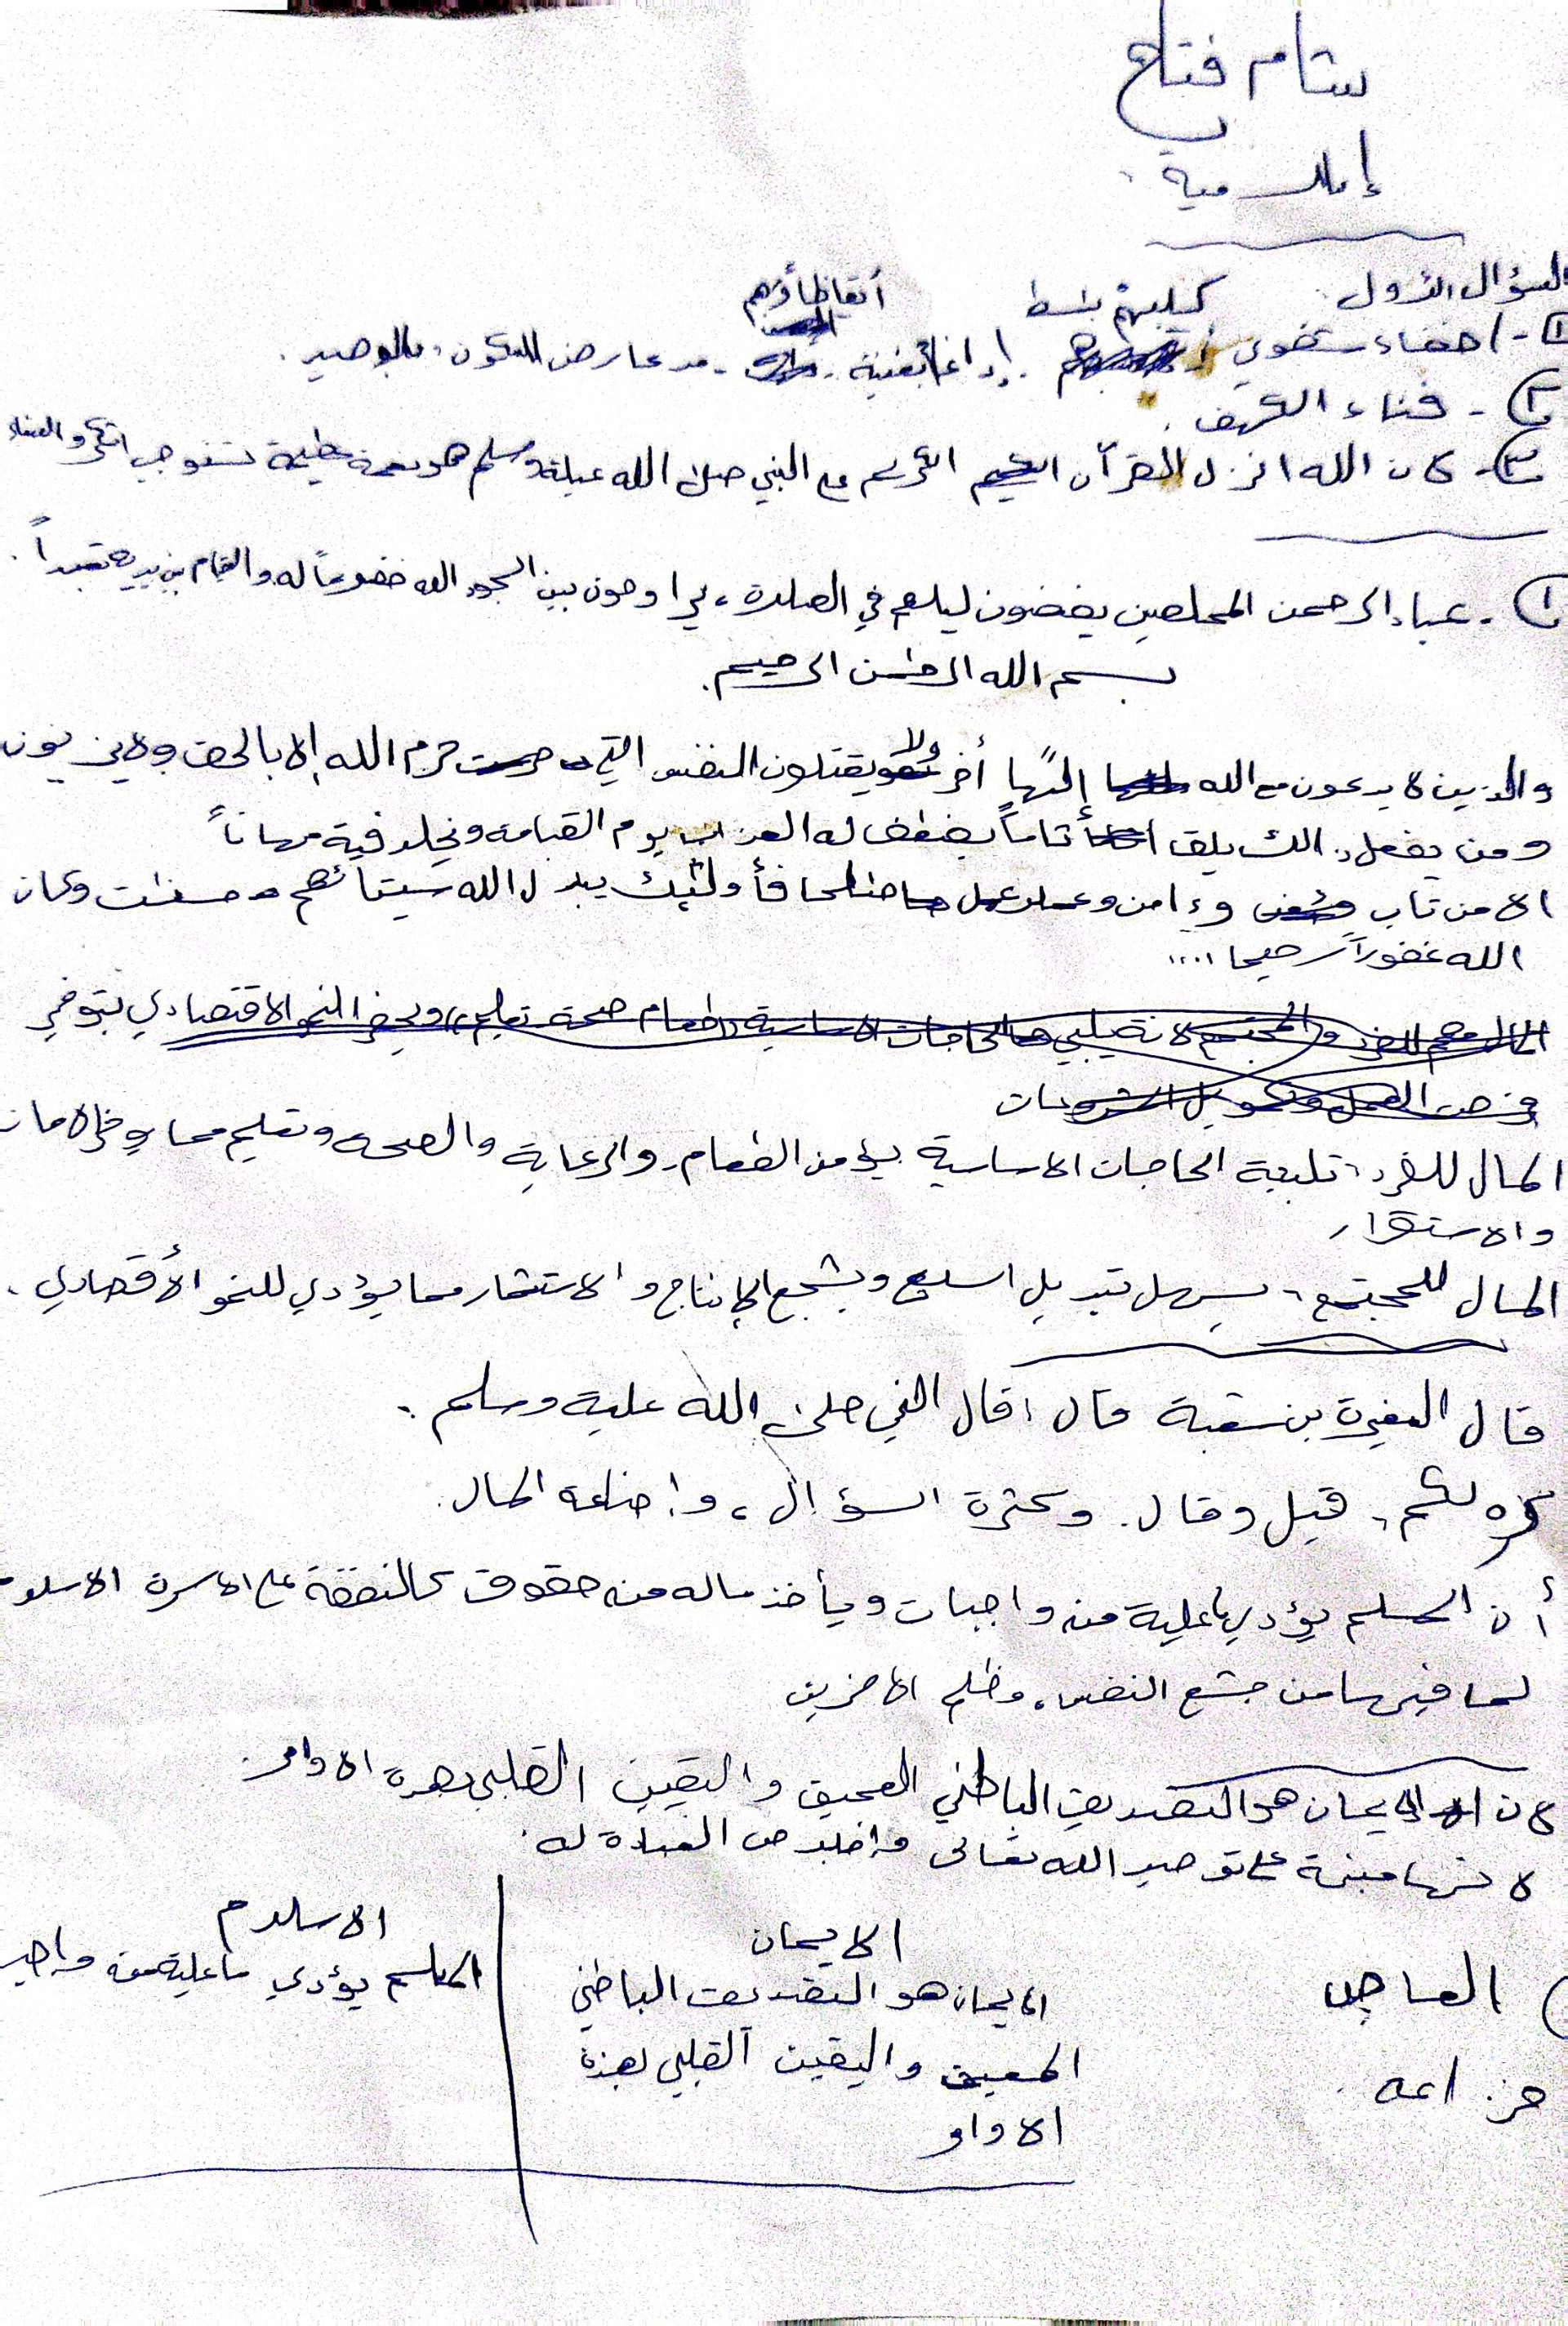 بشام فتاح
إسلامية
السؤال الاول
كلبهم بسط
أيقاظاً وهم
١- اخفاء شفوي. إدغام بغنية. مد عارض للسكون. بالوصيد.
٢- فناء الكهف.
٣- كان الله انزل القرآن الكريم على النبي صلى الله عيلة وسلم هو نعمة عظيمة تستوجب الشكر والثناء
١- عباد الرحمن المخلصين يقضون ليلهم في الصلاة، يراوحون بين السجود الله خضوعاً له والقيام بين يديه تعبداً.
بسم الله الرحمن الرحيم.
والذين لا يدعون مع الله إلهًا أخر ولا يقتلون النفس التي حرم الله إلا بالحق ولا يزنون
ومن يفعل ذالك يلق أثاماً يضعف له العذاب يوم القيامة ويخلد فية مهاناً
الا من تاب وءامن وعمل عمل صالحا فأولئك يبدل الله سيئاتهم حسنات وكان
الله غفوراً رحيما ....
المال مهم للفرد والمجتمع لانة يلبي الحاجات الاساسية (طعام صحة تعليم) ويحفز النمو الاقتصادي بتوفير
فرص العمل وتمويل المشروعات
المال للفرد: تلبية الحاجات الاساسية يؤمن الطعام والرعاية والصحه وتعليم مما يوفر الامان
والاستقرار
المال للمجتمع: يسهل تبديل السلع ويشجع الإنتاج والاستثمار مما يؤدي للنمو الأقصادي.
قال المغيرة بن شعبة قال: قال النبي صلى الله علية وسلم.
كره لكم: قيل وقال. وكثرة السؤال، واضاعه المال.
أن المسلم يؤدي ما علية من واجبات ويأخذ ماله من حقوق كالنفقة على الاسرة الاسلام
لما فيها من جشع النفس، وظلم الاخرين
لان الايمان هو التصديق الباطني العميق واليقين القلبي بهذة الاوامر.
لانها مبنية على توحيد الله تعالى واخلاص العبادة له.
الايمان
الاسلام
العاجل
الايمان هو التصديق الباطني
المسلم يؤدي ما علية من واجب
العميق واليقين القلبي بهذة
الاوامر
خزاعه